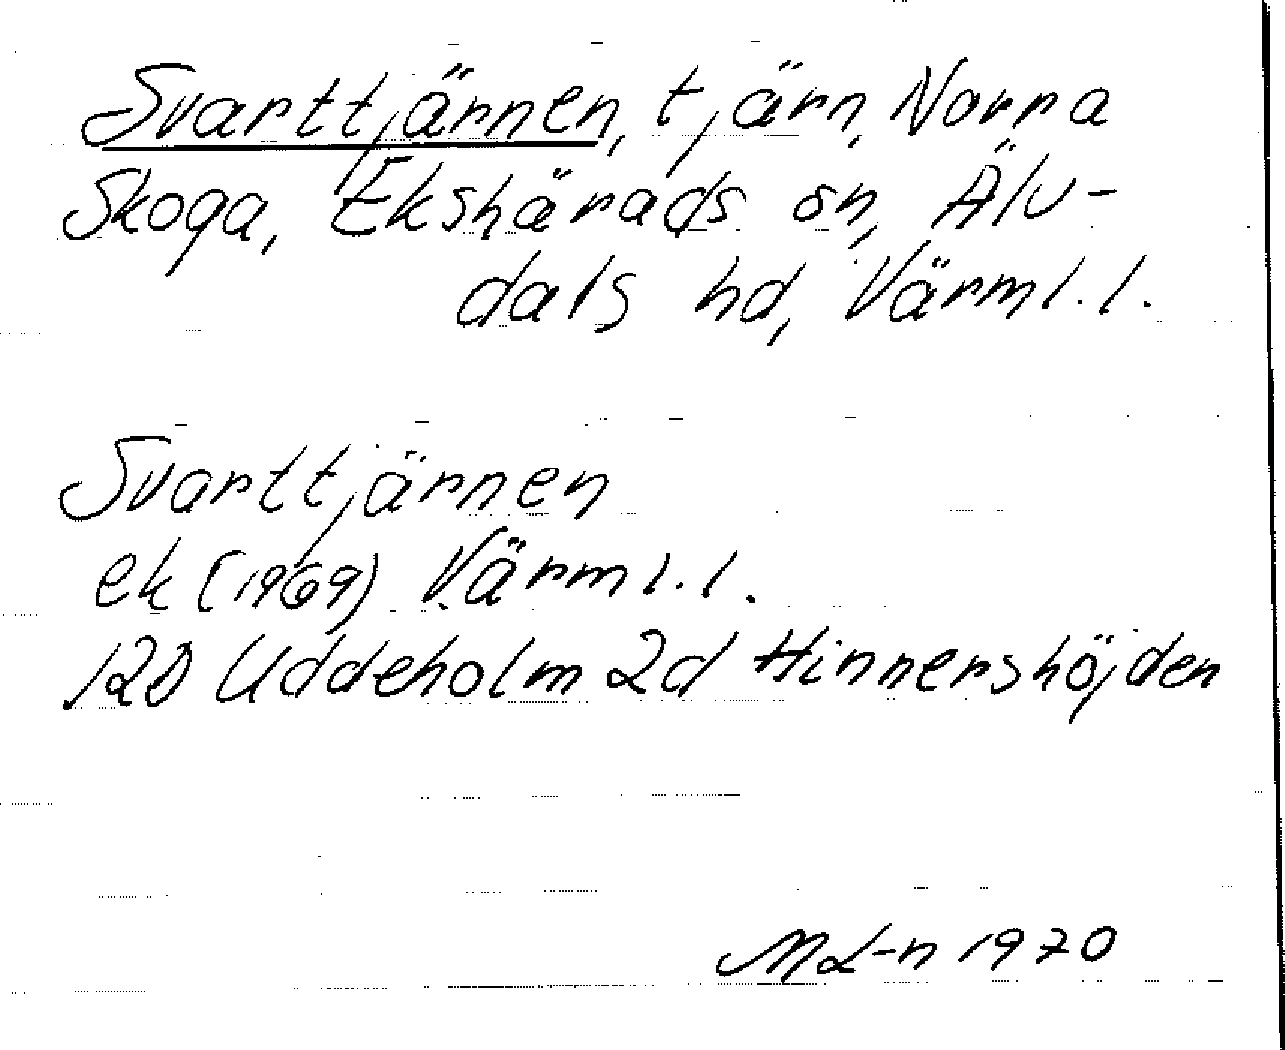 Svarttjärnen, tjärn, Norra
Skoga, Ekshärads sn, Älv-
dals hd, Värml. l.
Svarttjärnen
ek (1969) Värml. l.
12D Uddeholm 2d Hinnershöjden
ML-n 1970